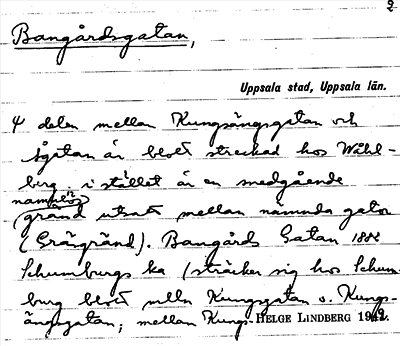 2
Bangårdsgatan,
Uppsala stad, Uppsala län.
delen mellan Kungsängsgatan och
Ågatan är blott streckad hos Wahl-
berg, i stället är en medgående
namnlös
gränd utsatt mellan nämnda gator
(Grängränd). Bangårds Gatan 1882
Schumburgs ka (sträcker sig hos Schum-
burg blott mlln Kungsgatan o. Kungs-
ängsgatan; mellan Kungs-
HELGE LINDBERG